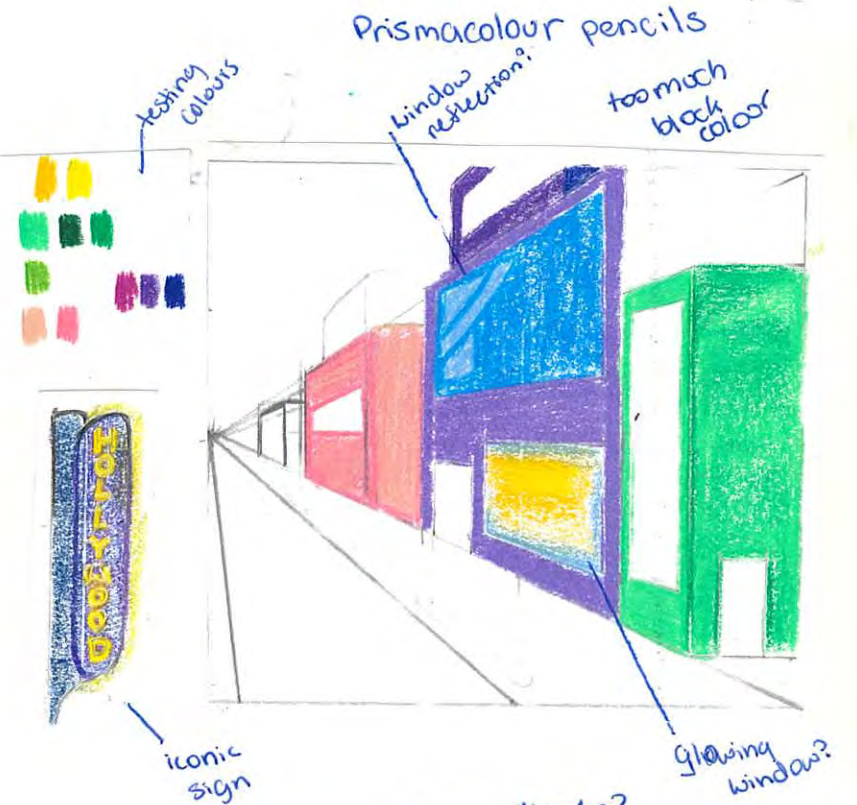 Prismacolour pencils
testing
colours
window
reflection?
too much
block
colour
HOLLYWOOD
iconic
sign
Glowing
window?